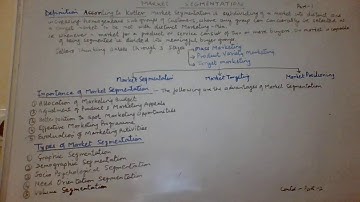 MARKET SEGMENTATION
Part-1
Definition According to Kotler- Market Segmentation is sub-dividing of a market into distinct and
homogeneous sub-groups of customers, where any group can conceivably be selected as
a target market to be met with distinct Marketing
Whenever a market for a product or service consist of two or more buyers, the market is capable
of being segmented
Sellers thinking passes through 3 stages
Mass Marketing
Product Variety Marketing
Target Marketing
Market Segmentation
Market Targeting
Market Positioning
Importance of Market Segmentation - The following are the advantages of Market Segmentation
① Allocation of Marketing Budget
② Adjustment of Product & Marketing Appeals
③ Better Position to spot Marketing Opportunities
④ Effective Marketing Programme
⑤ Evaluation of Marketing Activities
Types of Market Segmentation
① Graphic Segmentation
② Demographic Segmentation
③ Socio Psychological Segmentation
④ Need Orientation Segmentation
⑤ Volume Segmentation